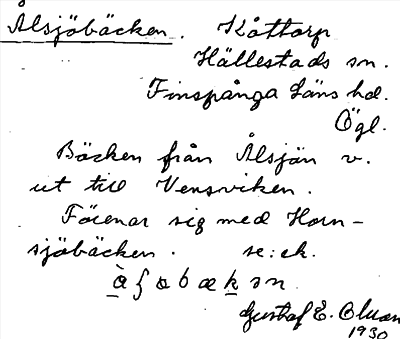 Ålsjöbäcken. Kåttorp
Hällestads sn.
Finspånga Läns hd.
Ögl.
Bäcken från Ålsjön v.
ut till Vensviken.
Förenar sig med Horn-
sjöbäcken. se: ek.
Gustaf E. Olsson
1930